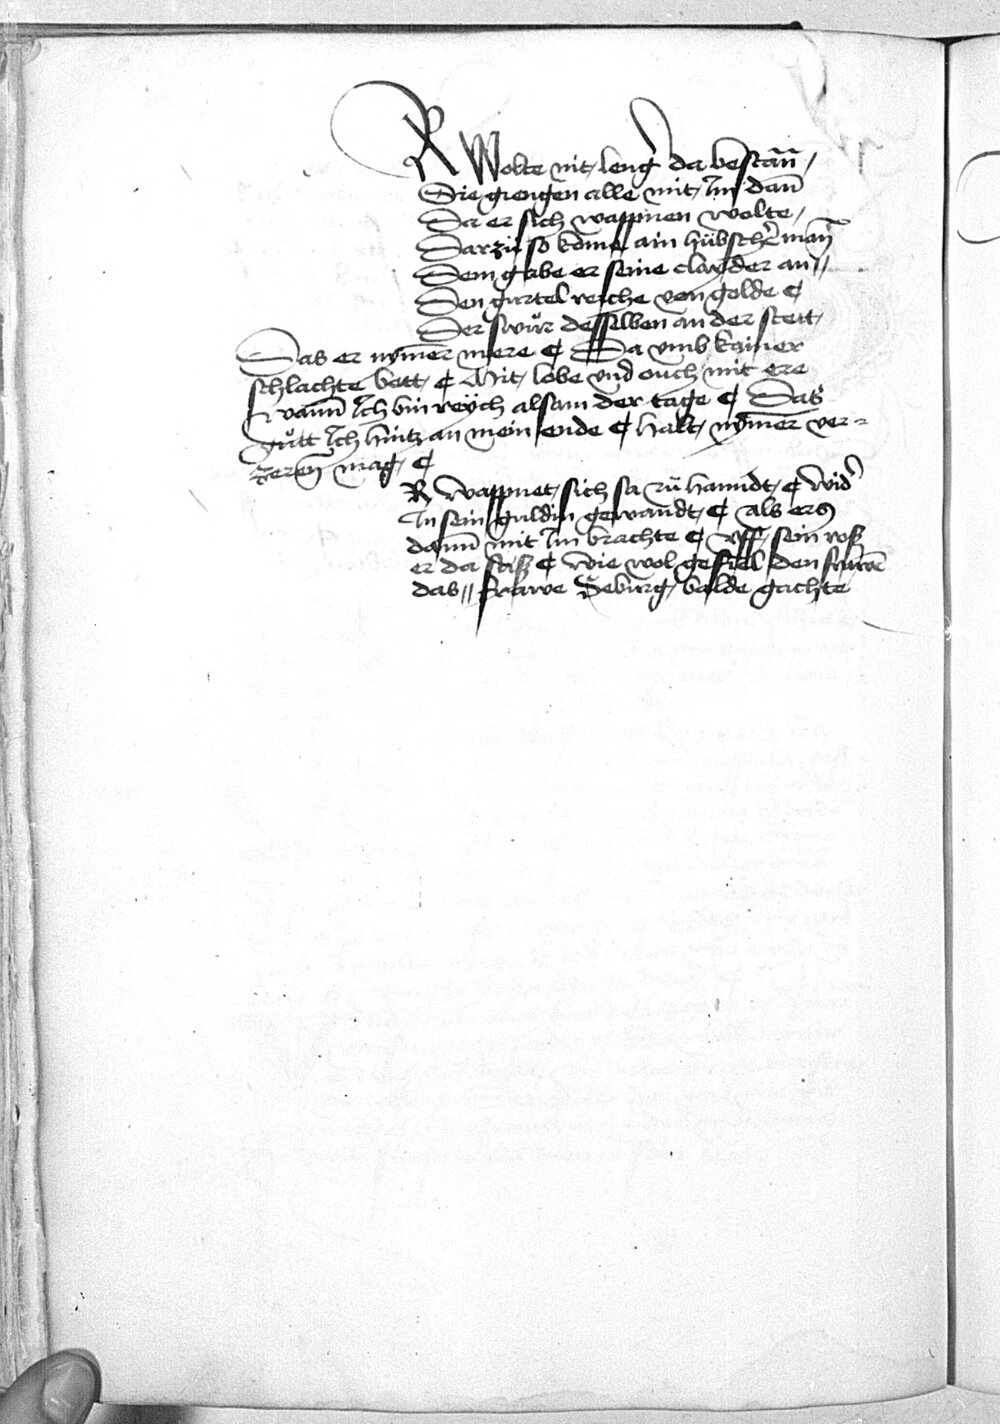 R Wolte nit leng̾ da bestan̄
Sie giengen alle mit Im dan̄
Da er sich wappnen wolte
Darzů so kome ain hübsch̾ man̄
Dem gabe er seine clayder an
Den gurtel reiche von golde ¢
Der swůr desselben an der stett
Das er nym̄er mere ¢ Da vmb kainer
schlachte bett ¢ Mit lobe vnd ouch mit ere
wann Ich bin reÿch alsam der tage ¢ Das
gůtt Ich hintz an mein ende ¢ Halt nym̄er ver=
zeren̄ mag ¢
R wappnet sich sa zů hanndt ¢ wid̾
In sein guldin gewandt ¢ als ers
dann mit Im brachte ¢ vff sein roß
er da saß ¢ wie wol gefiel den frawē
das // frawe Seburg balde gachte